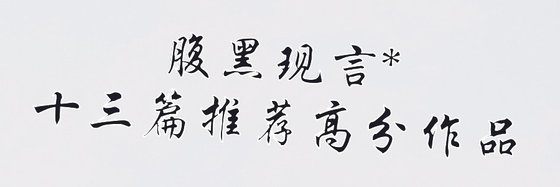 腹黑现言*
十三篇推荐高分作品